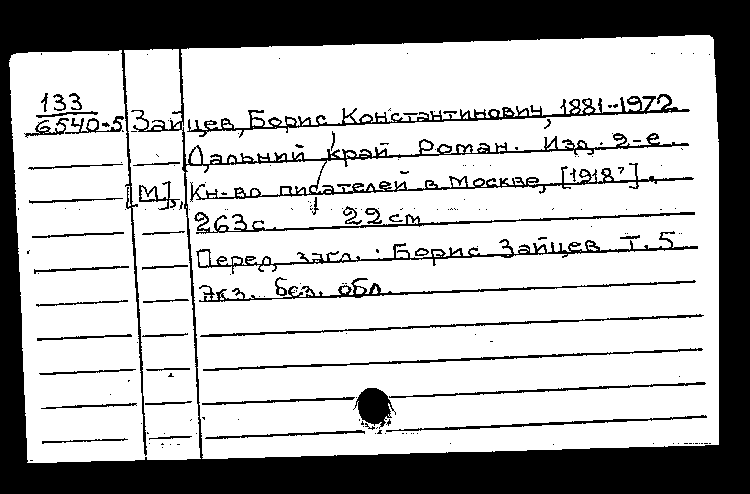 133
6540-5 Зайцев, Борис Константинович, 1881-1972
Дальний край. Роман. Изд. 2-е.
[М]., Кн-во писателей в Москве, [1918?].
263с. 22cm
Перед загл.: Борис Зайцев Т. 5
Экз. без. обл.